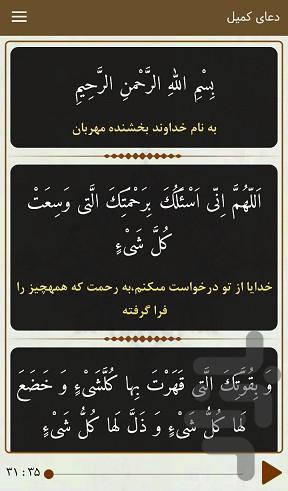 دعای کمیل
بِسْمِ اللهِ الرَّحْمنِ الرَّحِیمِ
به نام خداوند بخشنده مهربان
اَللّهُمَّ اِنّی اَسْئَلُکَ بِرَحْمَتِکَ الَّتی وَسِعَتْ
کُلَّ شَیْءٍ
خدایا از تو درخواست میکنم،به رحمت که همهچیز را
فرا گرفته
وَ بِقُوَّتِکَ الَّتی قَهَرْتَ بِها کُلَّشَیْءٍ وَ خَضَعَ
لَها کُلُّ شَیْءٍ وَ ذَلَّ لَها کُلُّ شَیْءٍ
۳۱ : ۳۵
بازار